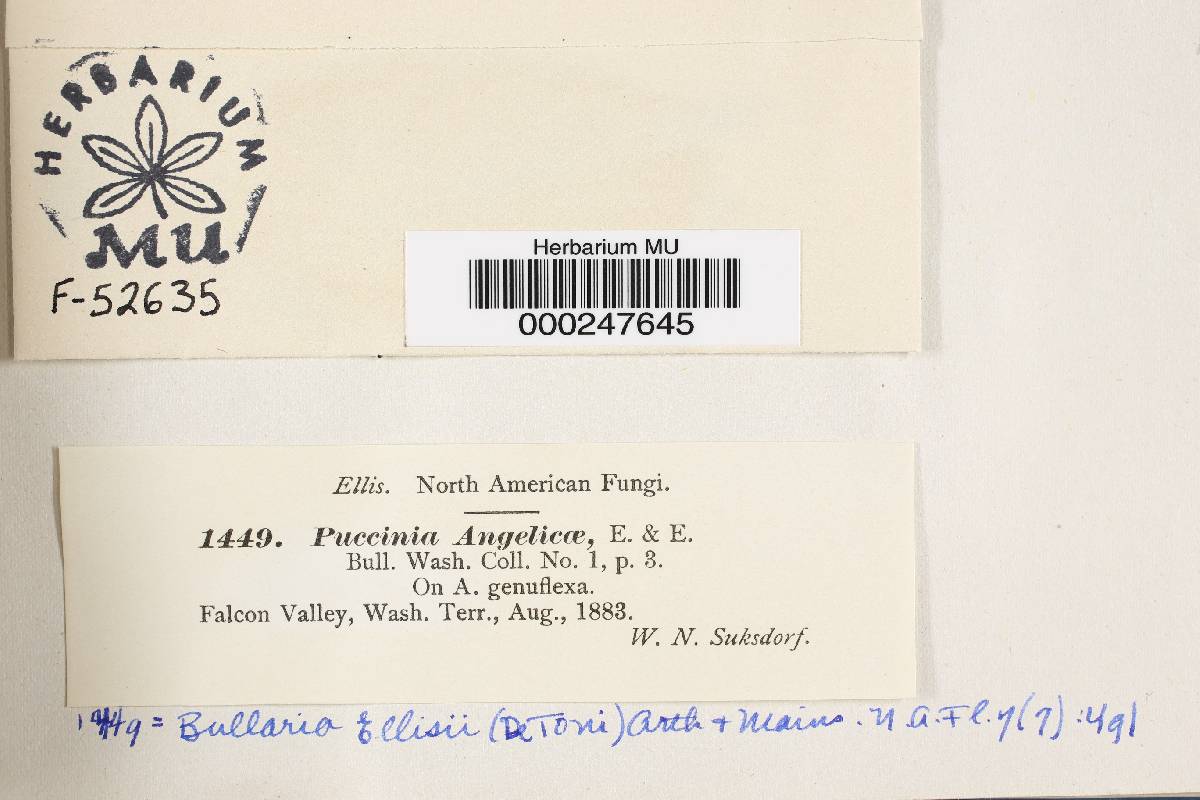 HERBARIUM
MU
F-52635
Herbarium MU
000247645
Ellis. North American Fungi.
1449. Puccinia Angelicæ, E. & E.
Bull. Wash. Coll. No. 1, p. 3.
On A. genuflexa.
Falcon Valley, Wash. Terr., Aug., 1883.
W. N. Suksdorf.
1449 = Bullaria Ellisii (De Toni) Arth + Mains. N.A.Fl. 7(7):491